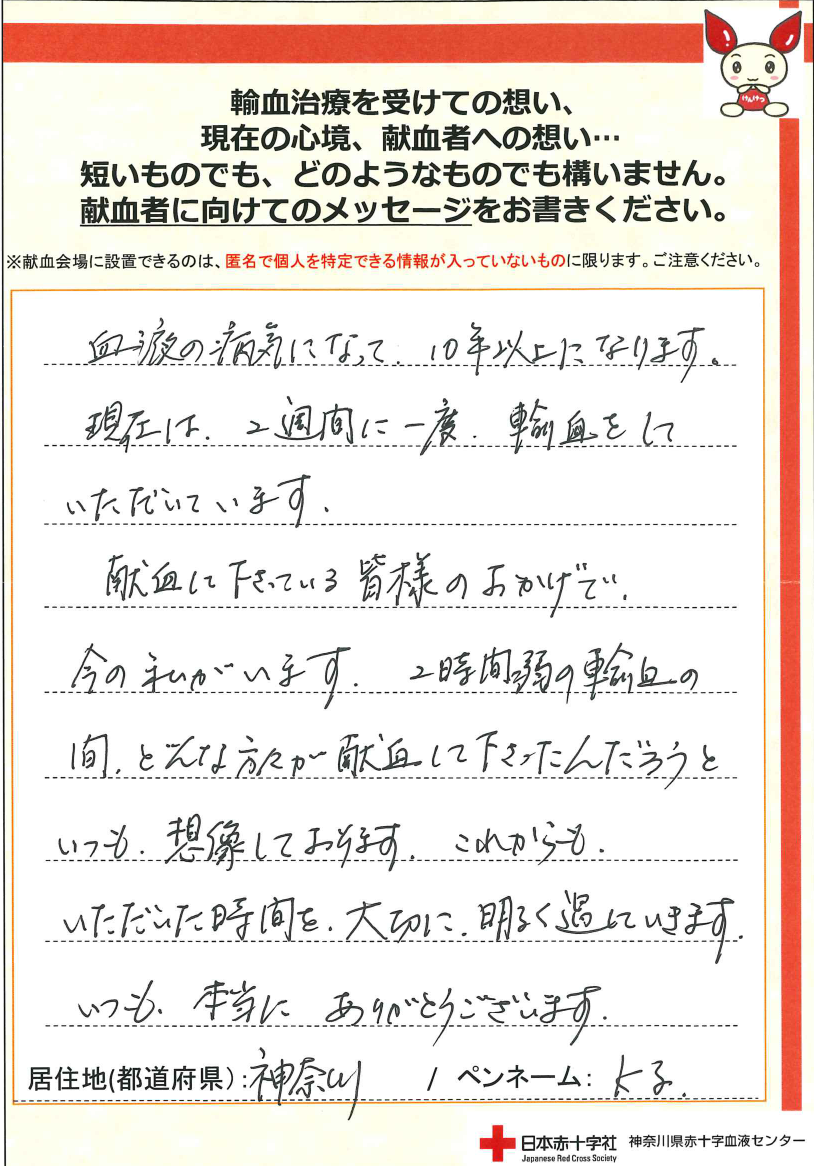 けんけつ
輸血治療を受けての想い、
現在の心境、献血者への想い…
短いものでも、どのようなものでも構いません。
献血者に向けてのメッセージをお書きください。
※献血会場に設置できるのは、匿名で個人を特定できる情報が入っていないものに限ります。ご注意ください。
血液の病気になって、10年以上になります。
現在は、2週間に一度、輸血をして
いただいています。
献血して下さっている皆様のおかげで、
今の私がいます。2時間弱の輸血の
間、どんな方々が献血して下さったんだろうと
いつも、想像しております。これからも、
いただいた時間を、大切に、明るく過していきます。
いつも、本当に ありがとうございます。
居住地(都道府県):神奈川 / ペンネーム: 子.
日本赤十字社 神奈川県赤十字血液センター
Japanese Red Cross Society